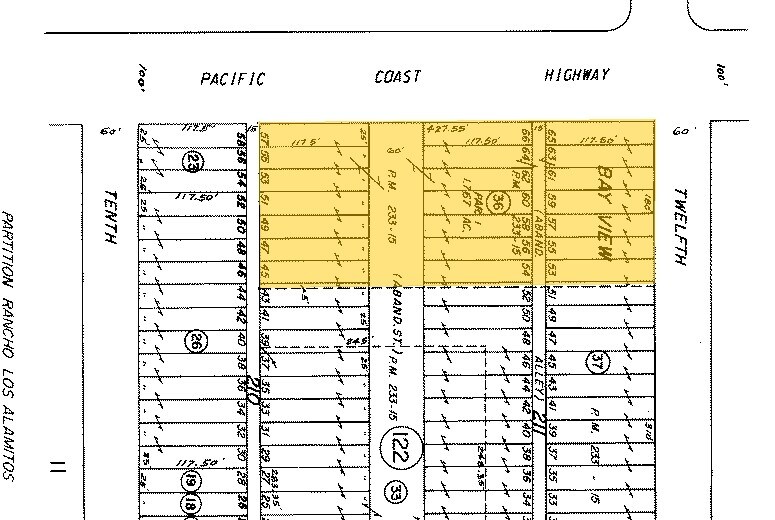 100'
100'
PACIFIC COAST HIGHWAY
60'
TENTH
TWELFTH
60'
PARTITION RANCHO LOS ALAMITOS
117.5'
427.55'
117.50'
117.50'
15'
15'
25
60'
P.M. 233-15
PAR. 1
1.767 AC.
P.M.
233-15
36
BAY VIEW
180'
(ABAND.
ALLEY)
(ABAND. ST.) P.M. 233-15
117.50'
117.50'
23
26
19
18
210
211
122
33
37
P.M. 233-15
310'
245'
58
56
54
52
50
48
46
44
42
40
38
36
34
32
30
28
26
57
53
51
49
47
45
43
41
39
37
35
33
31
29
27
25
66
64
62
60
58
56
54
52
50
48
46
44
42
40
38
36
34
65
63
61
59
57
55
53
51
49
47
45
43
41
39
37
35
33